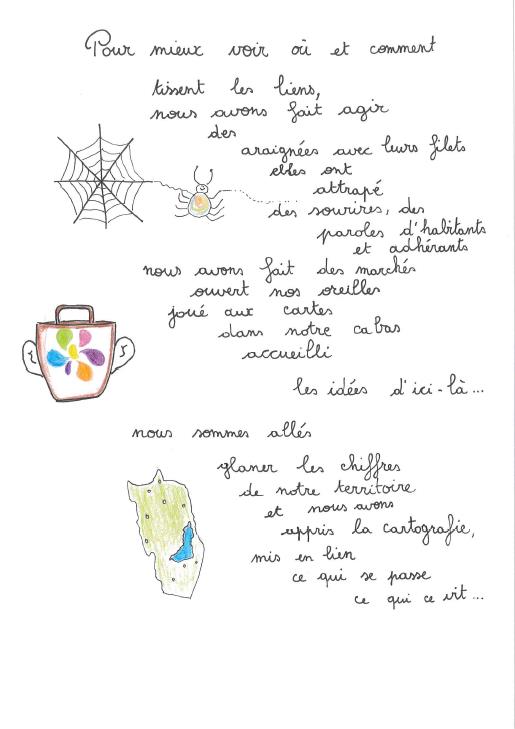 Pour mieux voir où et comment
tissent les liens,
nous avons fait agir
des
araignées avec leurs filets
elles ont
attrapé
des sourires, des
paroles d'habitants
et adhérants
nous avons fait des marchés
ouvert nos oreilles
joué aux cartes
dans notre cabas
accueilli
les idées d'ici-là...
nous sommes allés
glaner les chiffres
de notre territoire
et nous avons
appris la cartografie,
mis en lien
ce qui se passe
ce qui ce vit...